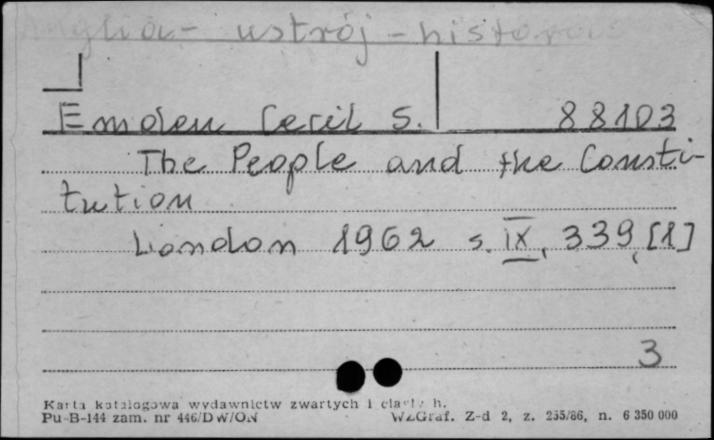 Anglia - ustrój - historia
Emden Cecil S. 88103
The People and the Consti-
tution
London 1962 s. IX, 339, [1]
3
Karta katalogowa wydawnictw zwartych i ciągłych.
Pu-B-144 zam. nr 446/DW/ON WZGraf. Z-d 2, z. 255/86, n. 6 350 000